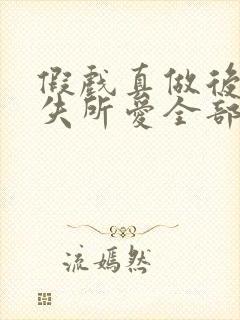 假戲真做後
失所愛全部
流嫣然